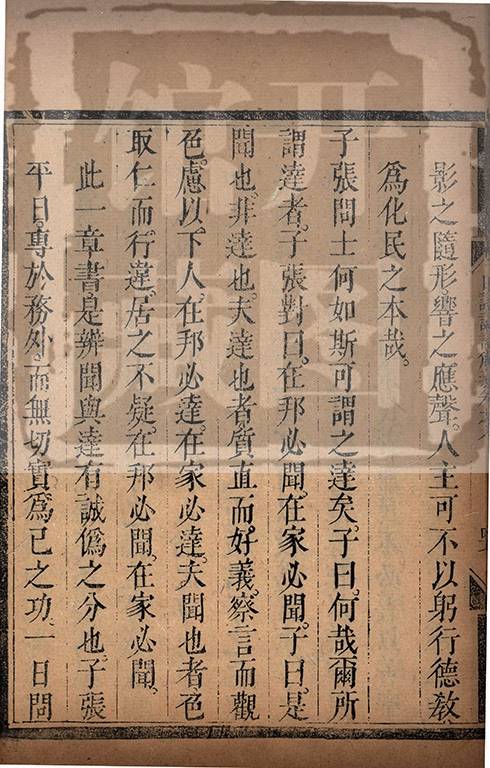 影之隨形響之應聲人主可不以躬行德教
為化民之本哉
子張問士何如斯可謂之達矣子曰何哉爾所
謂達者子張對曰在邦必聞在家必聞子曰是
聞也非達也夫達也者質直而好義察言而觀
色慮以下人在邦必達在家必達夫聞也者色
取仁而行違居之不疑在邦必聞在家必聞
此一章書是辨聞與達有誠偽之分也子張
平日專於務外而無切實為己之功一日問